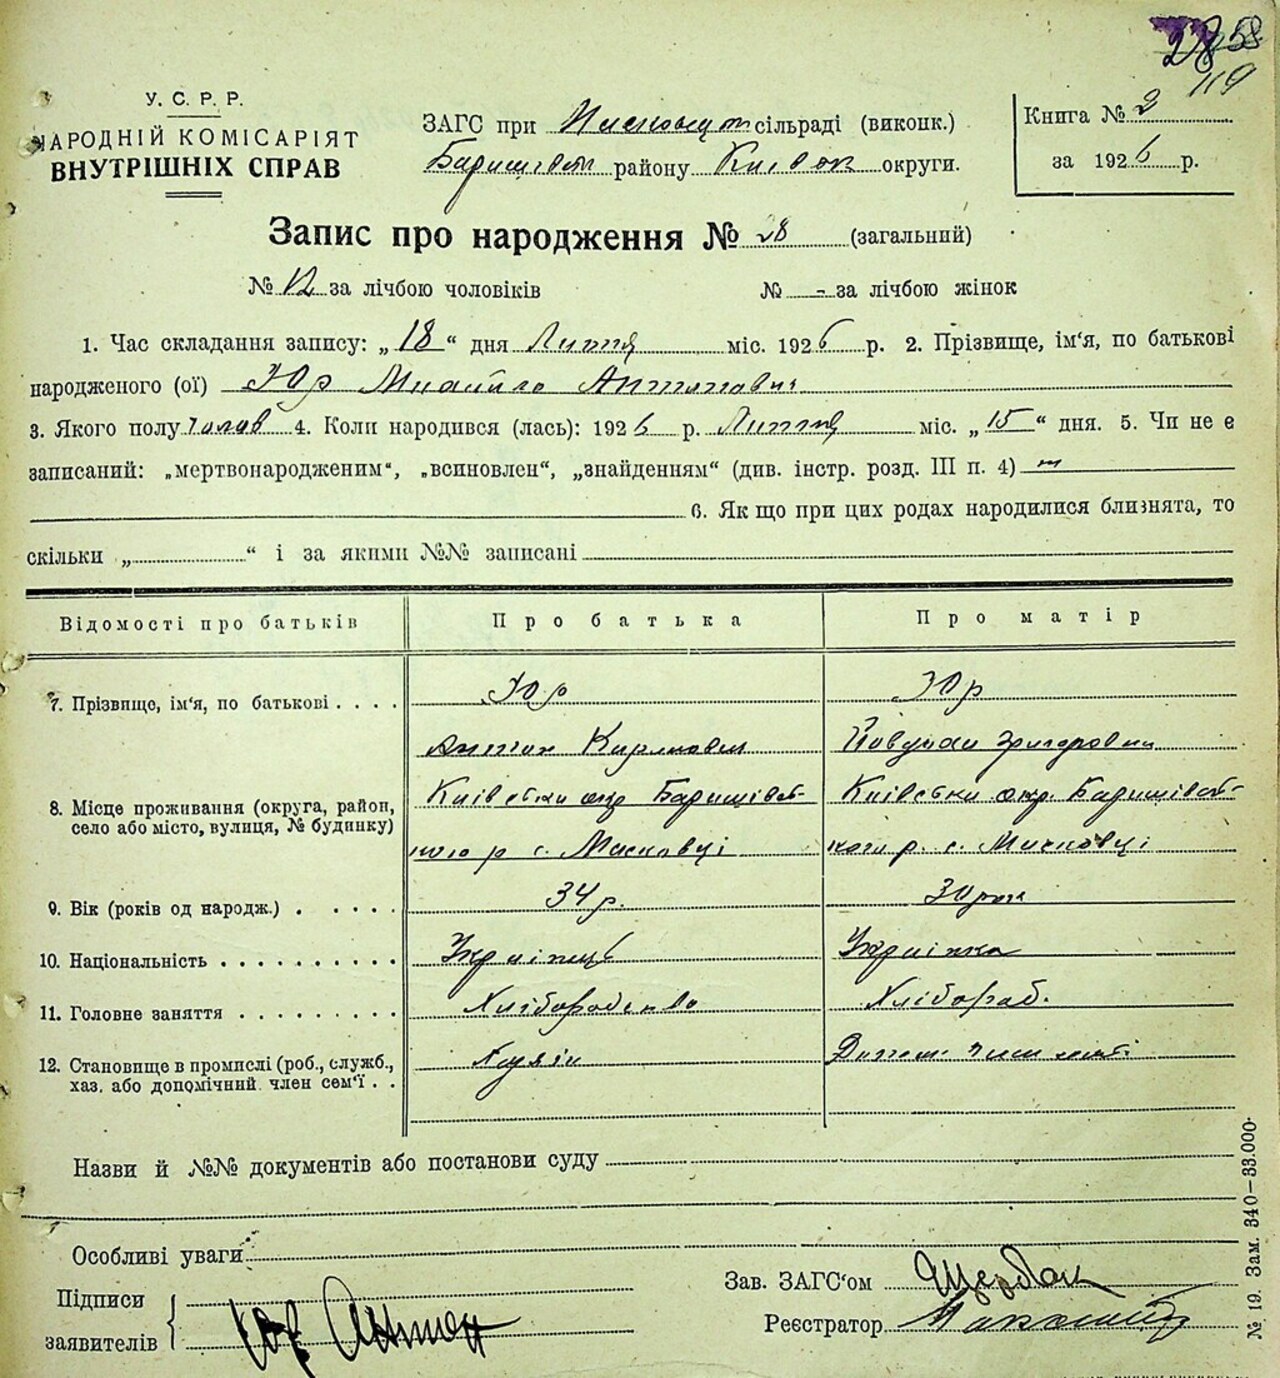 28 58
119
У. С. Р. Р.
НАРОДНІЙ КОМІСАРІЯТ
ВНУТРІШНІХ СПРАВ
ЗАГС при сільраді (виконк.)
Баришівськ району Київськ округи.
Книга № 2
за 1926 р.
Запис про народження № 28 (загальний)
№ 12 за лічбою чоловіків № - за лічбою жінок
1. Час складання запису: „18“ дня Липня міс. 1926 р. 2. Прізвище, ім'я, по батькові
народженого (ої) Юр Михайло Антонович
3. Якого полу чолов 4. Коли народився (лась): 1926 р. Липня міс. „15“ дня. 5. Чи не є
записаний: „мертвонародженим“, „всиновлен“, „знайденням“ (див. інстр. розд. III п. 4)
6. Як що при цих родах народилися близнята, то
скільки „ “ і за якими №№ записані
Відомості про батьків Про батька Про матір
7. Прізвище, ім'я, по батькові . . . . Юр Юр
Антон Кирилович Григоровна
8. Місце проживання (округа, район, село або місто, вулиця, № будинку) Київська окр Баришівсь- Київська окр. Баришівсь-
кого р с. Масковці кого р. с. Масковці
9. Вік (років од народж.) . . . . . 34 р. 30 рок
10. Національність . . . . . . . . . . Українець Українка
11. Головне заняття . . . . . . . . . Хліборобство Хлібороб.
12. Становище в промислі (роб., служб., хаз. або допомічний член сем'ї . . Хазяїн
Назви й №№ документів або постанови суду
Особливі уваги
Підписи
заявителів
Юр Антон
Зав. ЗАГС'ом Щербак
Реєстратор
№ 19. Зам. 340—33.000.